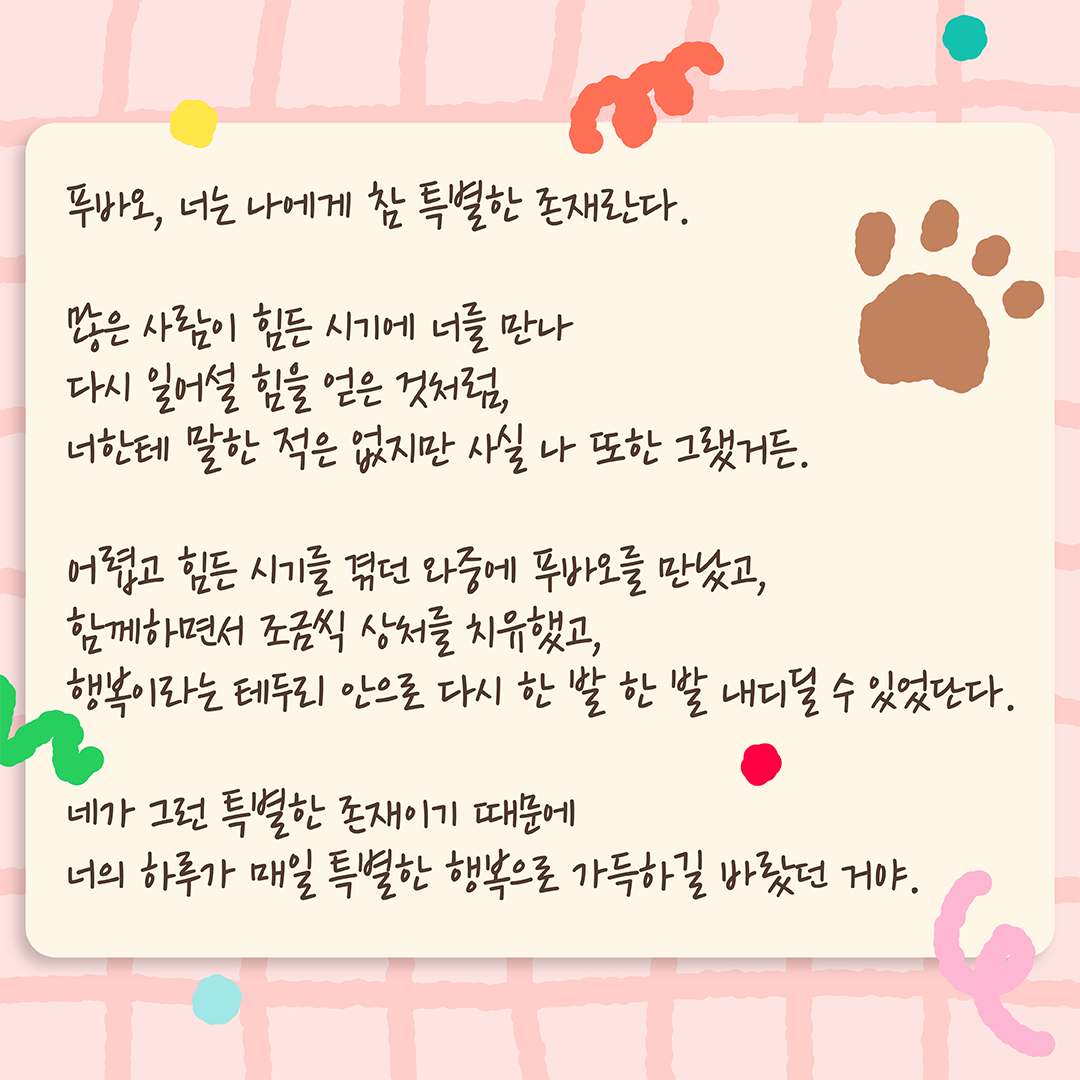 푸바오, 너는 나에게 참 특별한 존재란다.
많은 사람이 힘든 시기에 너를 만나
다시 일어설 힘을 얻은 것처럼,
너한테 말한 적은 없지만 사실 나 또한 그랬거든.
어렵고 힘든 시기를 겪던 와중에 푸바오를 만났고,
함께하면서 조금씩 상처를 치유했고,
행복이라는 테두리 안으로 다시 한 발 한 발 내디딜 수 있었단다.
네가 그런 특별한 존재이기 때문에
너의 하루가 매일 특별한 행복으로 가득하길 바랐던 거야.